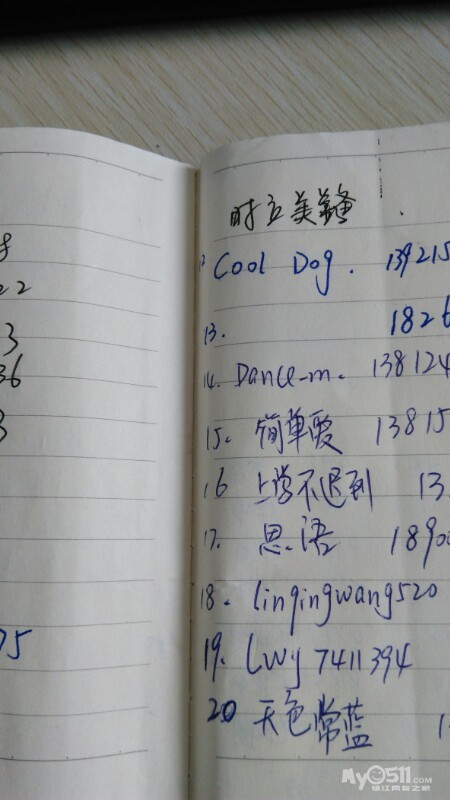 22
3
36
3
75
时立美
12 Cool Dog. 139215
13. 1826
14. Dance-m. 138124
15. 简单爱 13815
16 上学不迟到 13
17. 思语 18900
18. linqingwang520
19. Lwy 7411394
20 天色常蓝 1
My0511.com
镇江网友之家